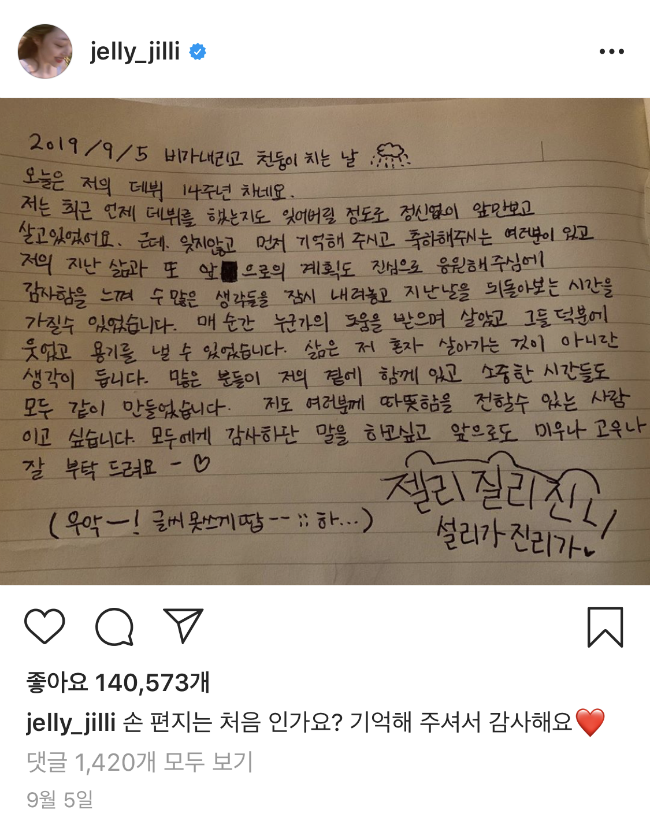 jelly_jilli
2019/9/5 비가내리고 천둥이 치는 날
오늘은 저의 데뷔 14주년 차네요.
저는 최근 언제 데뷔를 했는지도 잊어버릴 정도로 정신없이 앞만보고
살고있었어요. 근데, 잊지않고 먼저 기억해 주시고 축하해주시는 여러분이 있고
저의 지난 삶과 또 앞으로의 계획도 진심으로 응원해주심에
감사함을 느껴 수많은 생각들을 잠시 내려놓고 지난날을 뒤돌아보는 시간을
가질수 있었습니다. 매 순간 누군가의 도움을 받으며 살았고 그들 덕분에
웃었고 용기를 낼 수 있었습니다. 삶은 저 혼자 살아가는 것이 아니란
생각이 듭니다. 많은 분들이 저의 곁에 함께 있고 소중한 시간들도
모두 같이 만들었습니다. 저도 여러분께 따뜻함을 전할수 있는 사람
이고 싶습니다. 모두에게 감사하단 말을 하고싶고 앞으로도 미우나 고우나
잘 부탁 드려요 - ♡
젤리 질리 진
(우악-! 글씨 못쓰게땁-- ;; 하...)
설리가 진리가
좋아요 140,573개
jelly_jilli 손 편지는 처음 인가요? 기억해 주셔서 감사해요❤️
댓글 1,420개 모두 보기
9월 5일